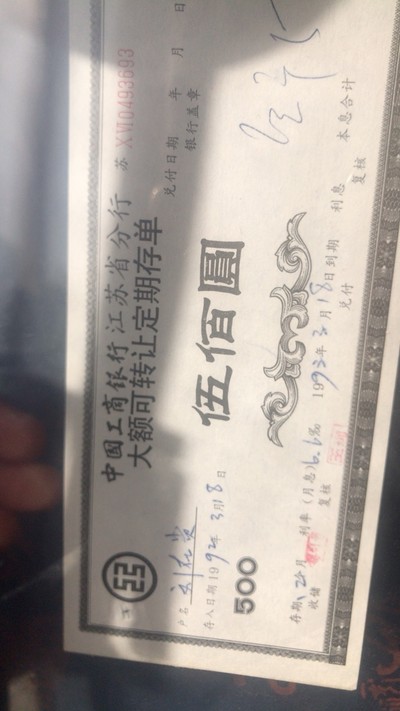 中国工商银行江苏省分行
大额可转让定期存单
苏 XVI0493693
户名
存入日期1992年3月18日
兑付日期 年 月 日
银行盖章
伍佰圆
500
存期 12个月 利率(月息)6.6‰ 1993年3月18日到期 利息 本息合计
收储 复核 兑付 复核